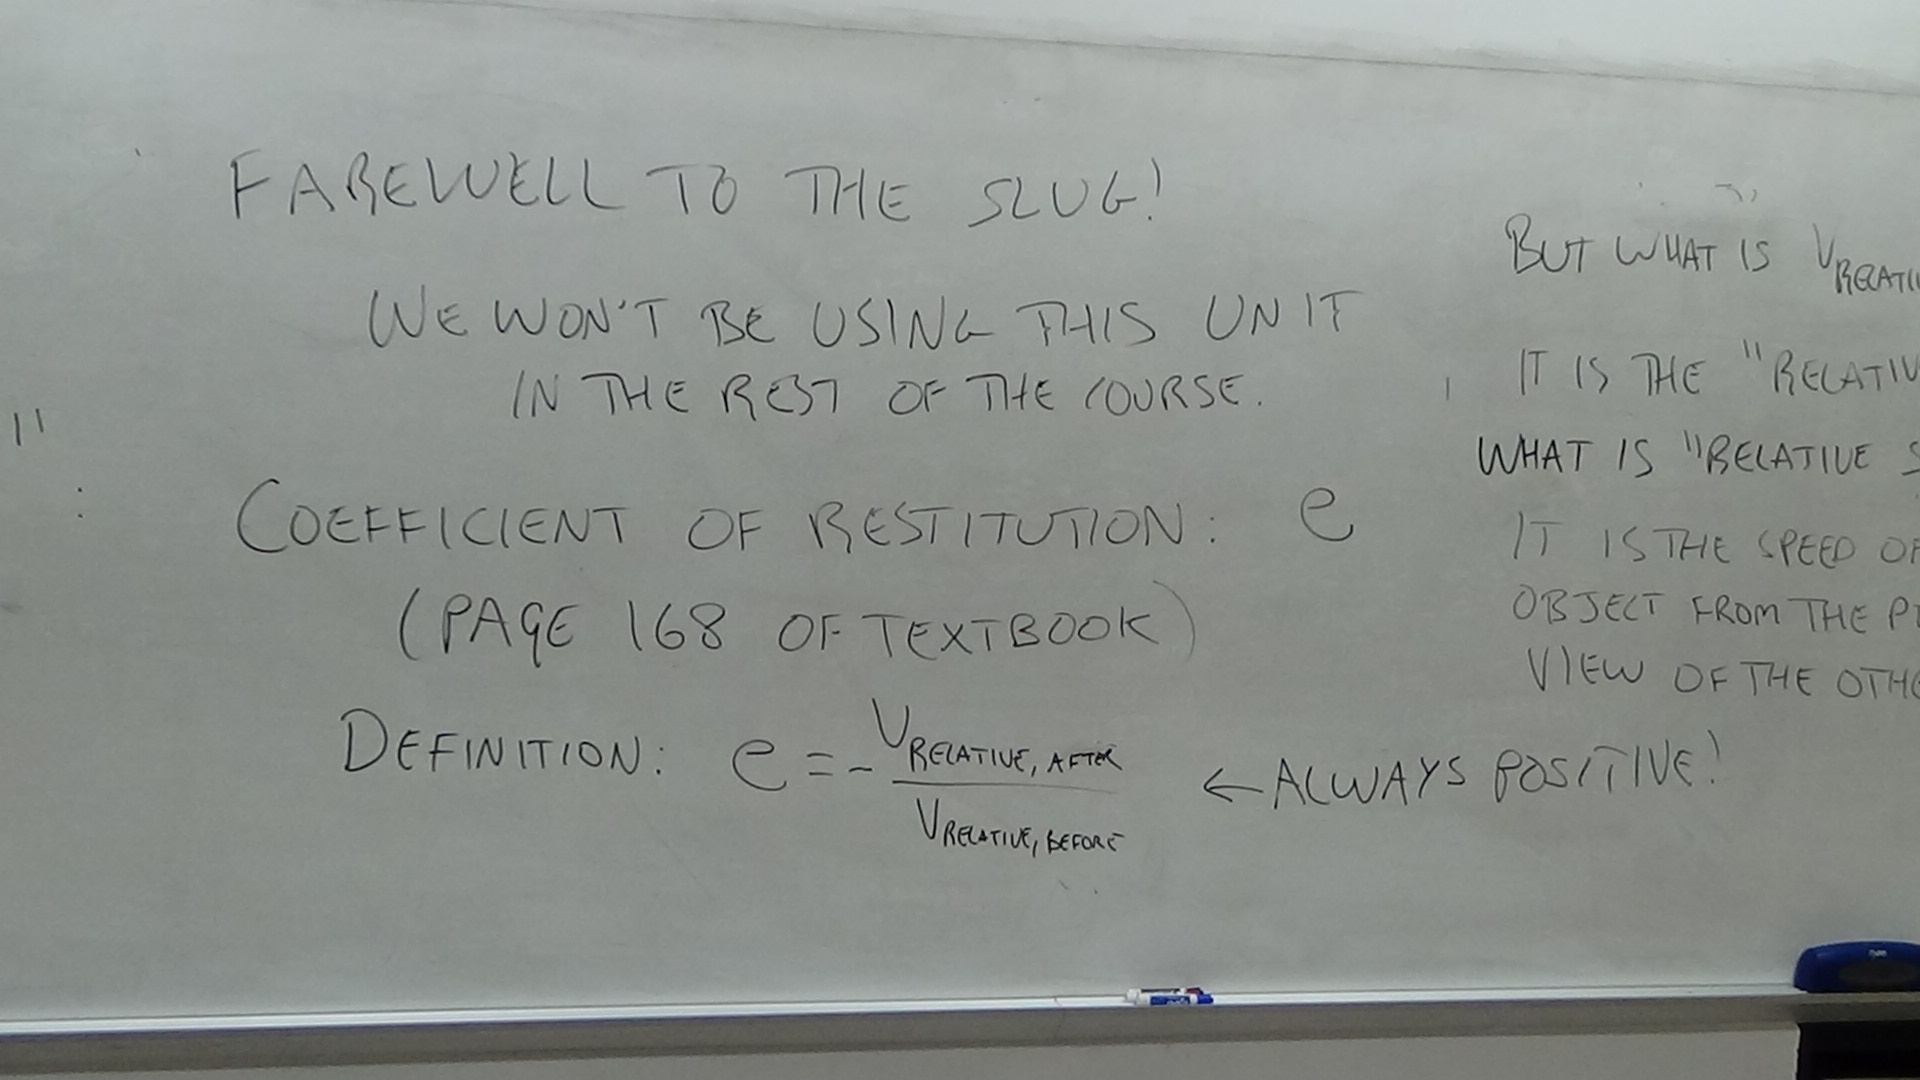 FAREWELL TO THE SLUG!
WE WON'T BE USING THIS UNIT
IN THE REST OF THE COURSE.
"
:
COEFFICIENT OF RESTITUTION: e
(PAGE 168 OF TEXTBOOK)
DEFINITION: e = - V RELATIVE, AFTER
V RELATIVE, BEFORE
← ALWAYS POSITIVE!
BUT WHAT IS V
IT IS THE "
WHAT IS "RELATIVE
IT IS THE SPEED
OBJECT FROM THE
VIEW OF THE